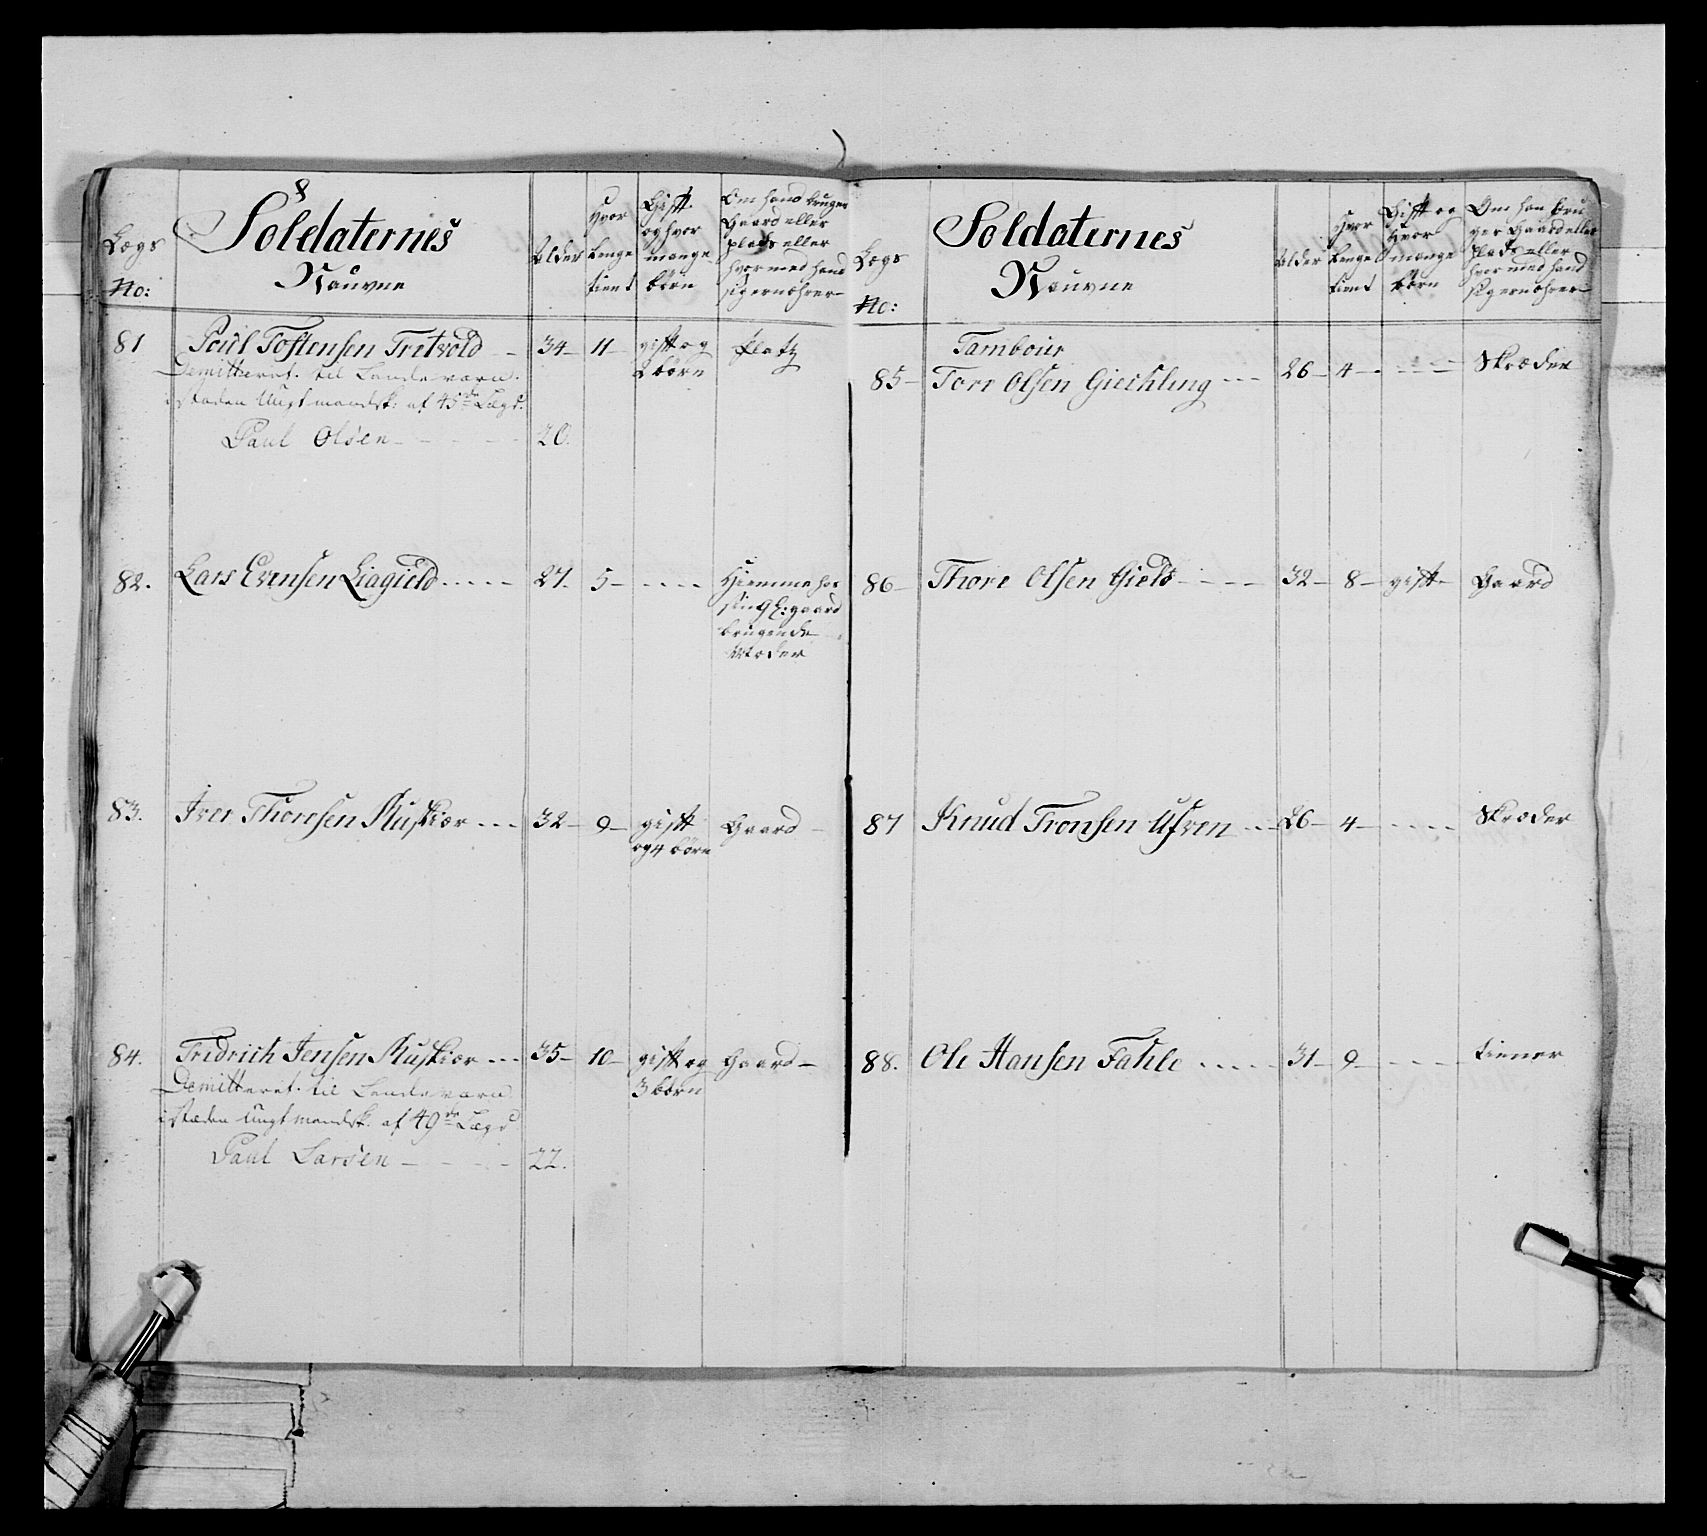 8
Lægs
No:
Soldaternes
Nauvne
Alder
Hvor
lenge
tient
Gift
og hvor
mange
børn
Om hand bruger
Gaard eller
plads eller
hvor med hand
sig ernæhrer
81 Poul Tostensen Tretvold 34 11 gift og Platz
2 børn
Demitteret til Landeværn
i støden Ungt mandsk: af 45de Lægd.
Paul Olsen 20.
82. Lars Evensen Liagield 27. 5 Hiemme hos
sin G E: gaard
brugende
Moder
83. Iver Thoresen Muskiær 32 9 gift Gaard
og 4 børn
84. Fridrich Jensen Muskiær 35 10 gift og Gaard
3 børn
Demitteret til Landeværn
i støden Ungt mandsk. af 49de Lægd
Paul Larsen 22.
Lægs
No:
Soldaternes
Nauvne
Alder
Hvor
lenge
tient
Gift og
hvor
mange
børn
Om han bru
ger Gaard eller
plads eller
hvor med hand
sig ernæhrer
Tambour
85 Tore Olsen Giechling 26 4 Skræder
86 Thore Olsen Gield 32 8 gift Gaard
87 Knud Tronsen Ufven 26 4 Skræder
88. Ole Hansen Fahle 31 9 tiener